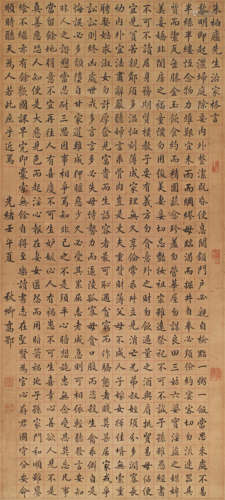 朱柏廬先生治家格言
黎明即起灑掃庭除要內外整潔既昏便息關鎖門戶必親自檢點一粥一飯當思來處不易半絲
半縷恒念物力維艱宜未雨而綢繆毋臨渴而掘井自奉必須儉約宴客切勿流連器具
質而潔瓦缶勝金玉飲食約而精園蔬愈珍羞勿營華屋勿謀良田三姑六婆實淫盜
之媒婢美妾嬌非閨房之福奴僕勿用俊美妻妾切忌豔妝祖宗雖遠祭祀不可不誠子孫雖愚經書
不可不讀居身務期質樸教子要有義方勿貪意外之財勿飲過量之酒與肩挑貿易毋佔便
宜見貧苦親鄰須加溫恤刻薄成家理無久享倫常乖舛立見消亡兄弟叔姪須分多潤寡長幼
內外宜法肅辭嚴聽婦言乖骨肉豈是丈夫重資財薄父母不成人子嫁女擇佳婿毋索重聘
娶媳求淑女勿計厚奩見富貴而生諂容者最可恥遇貧窮而作驕態者賤莫甚居家戒爭訟
訟則終凶處世戒多言言多必失毋恃勢力而凌逼孤寡毋貪口腹而恣殺生禽乖僻自是
悔誤必多頹惰自甘家道難成狎暱惡少久必受其累屈志老成急則可相依輕聽發言安知非
人之譖愬當忍耐三思因事相爭焉知非我之不是須平心暗想施惠無念受恩莫忘凡事
當留餘地得意不宜再往人有喜慶不可生妒嫉心人有禍患不可生喜幸心善欲人見不是
真善惡恐人知便是大惡見色而起淫心報在妻女匿怨而用暗箭禍延子孫家門和順雖
饔飧不繼亦有餘歡國課早完即囊橐無餘自得至樂讀書志在聖賢為官心存君國守分安命
順時聽天為人若此庶乎近焉
光緒壬午夏 秋卿高